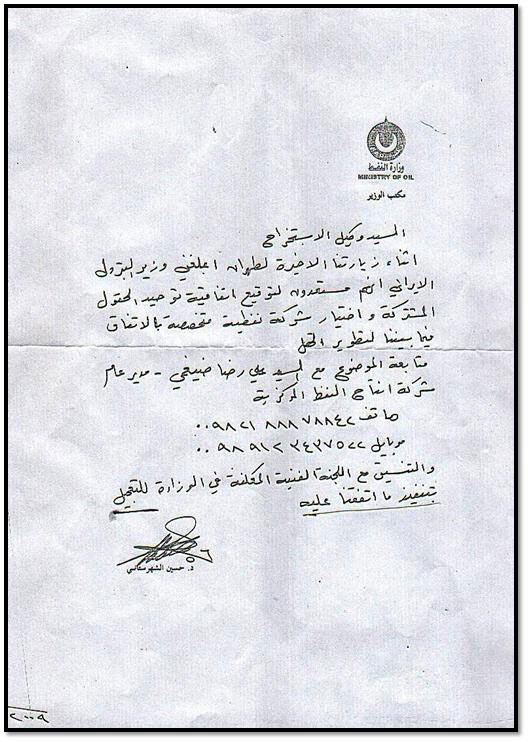 وزارة النفط
MINISTRY OF OIL
مكتب الوزير
السيد وكيل الاستخراج
اثناء زيارتنا الاخيرة لطهران ابلغني وزير البترول
الايراني انهم مستعدون لتوقيع اتفاقية توحيد الحقول
المشتركة واختيار شركة نفطية متخصصة بالاتفاق
فيما بيننا لتطوير الحقل
متابعة الموضوع مع السيد علي رضا ضيغمي - مدير عام
شركة انتاج النفط المركزية
هاتف ٠٠٩٨٢١ ٨٨٨٧٨٨٤٢
موبايل ٠٠٩٨٩١٢٣٤٣٧٥٢٢
والتنسيق مع اللجنة الفنية المكلفة في الوزارة للتعجيل
بتنفيذ ما اتفقنا عليه
د. حسين الشهرستاني
٢٠٠٩